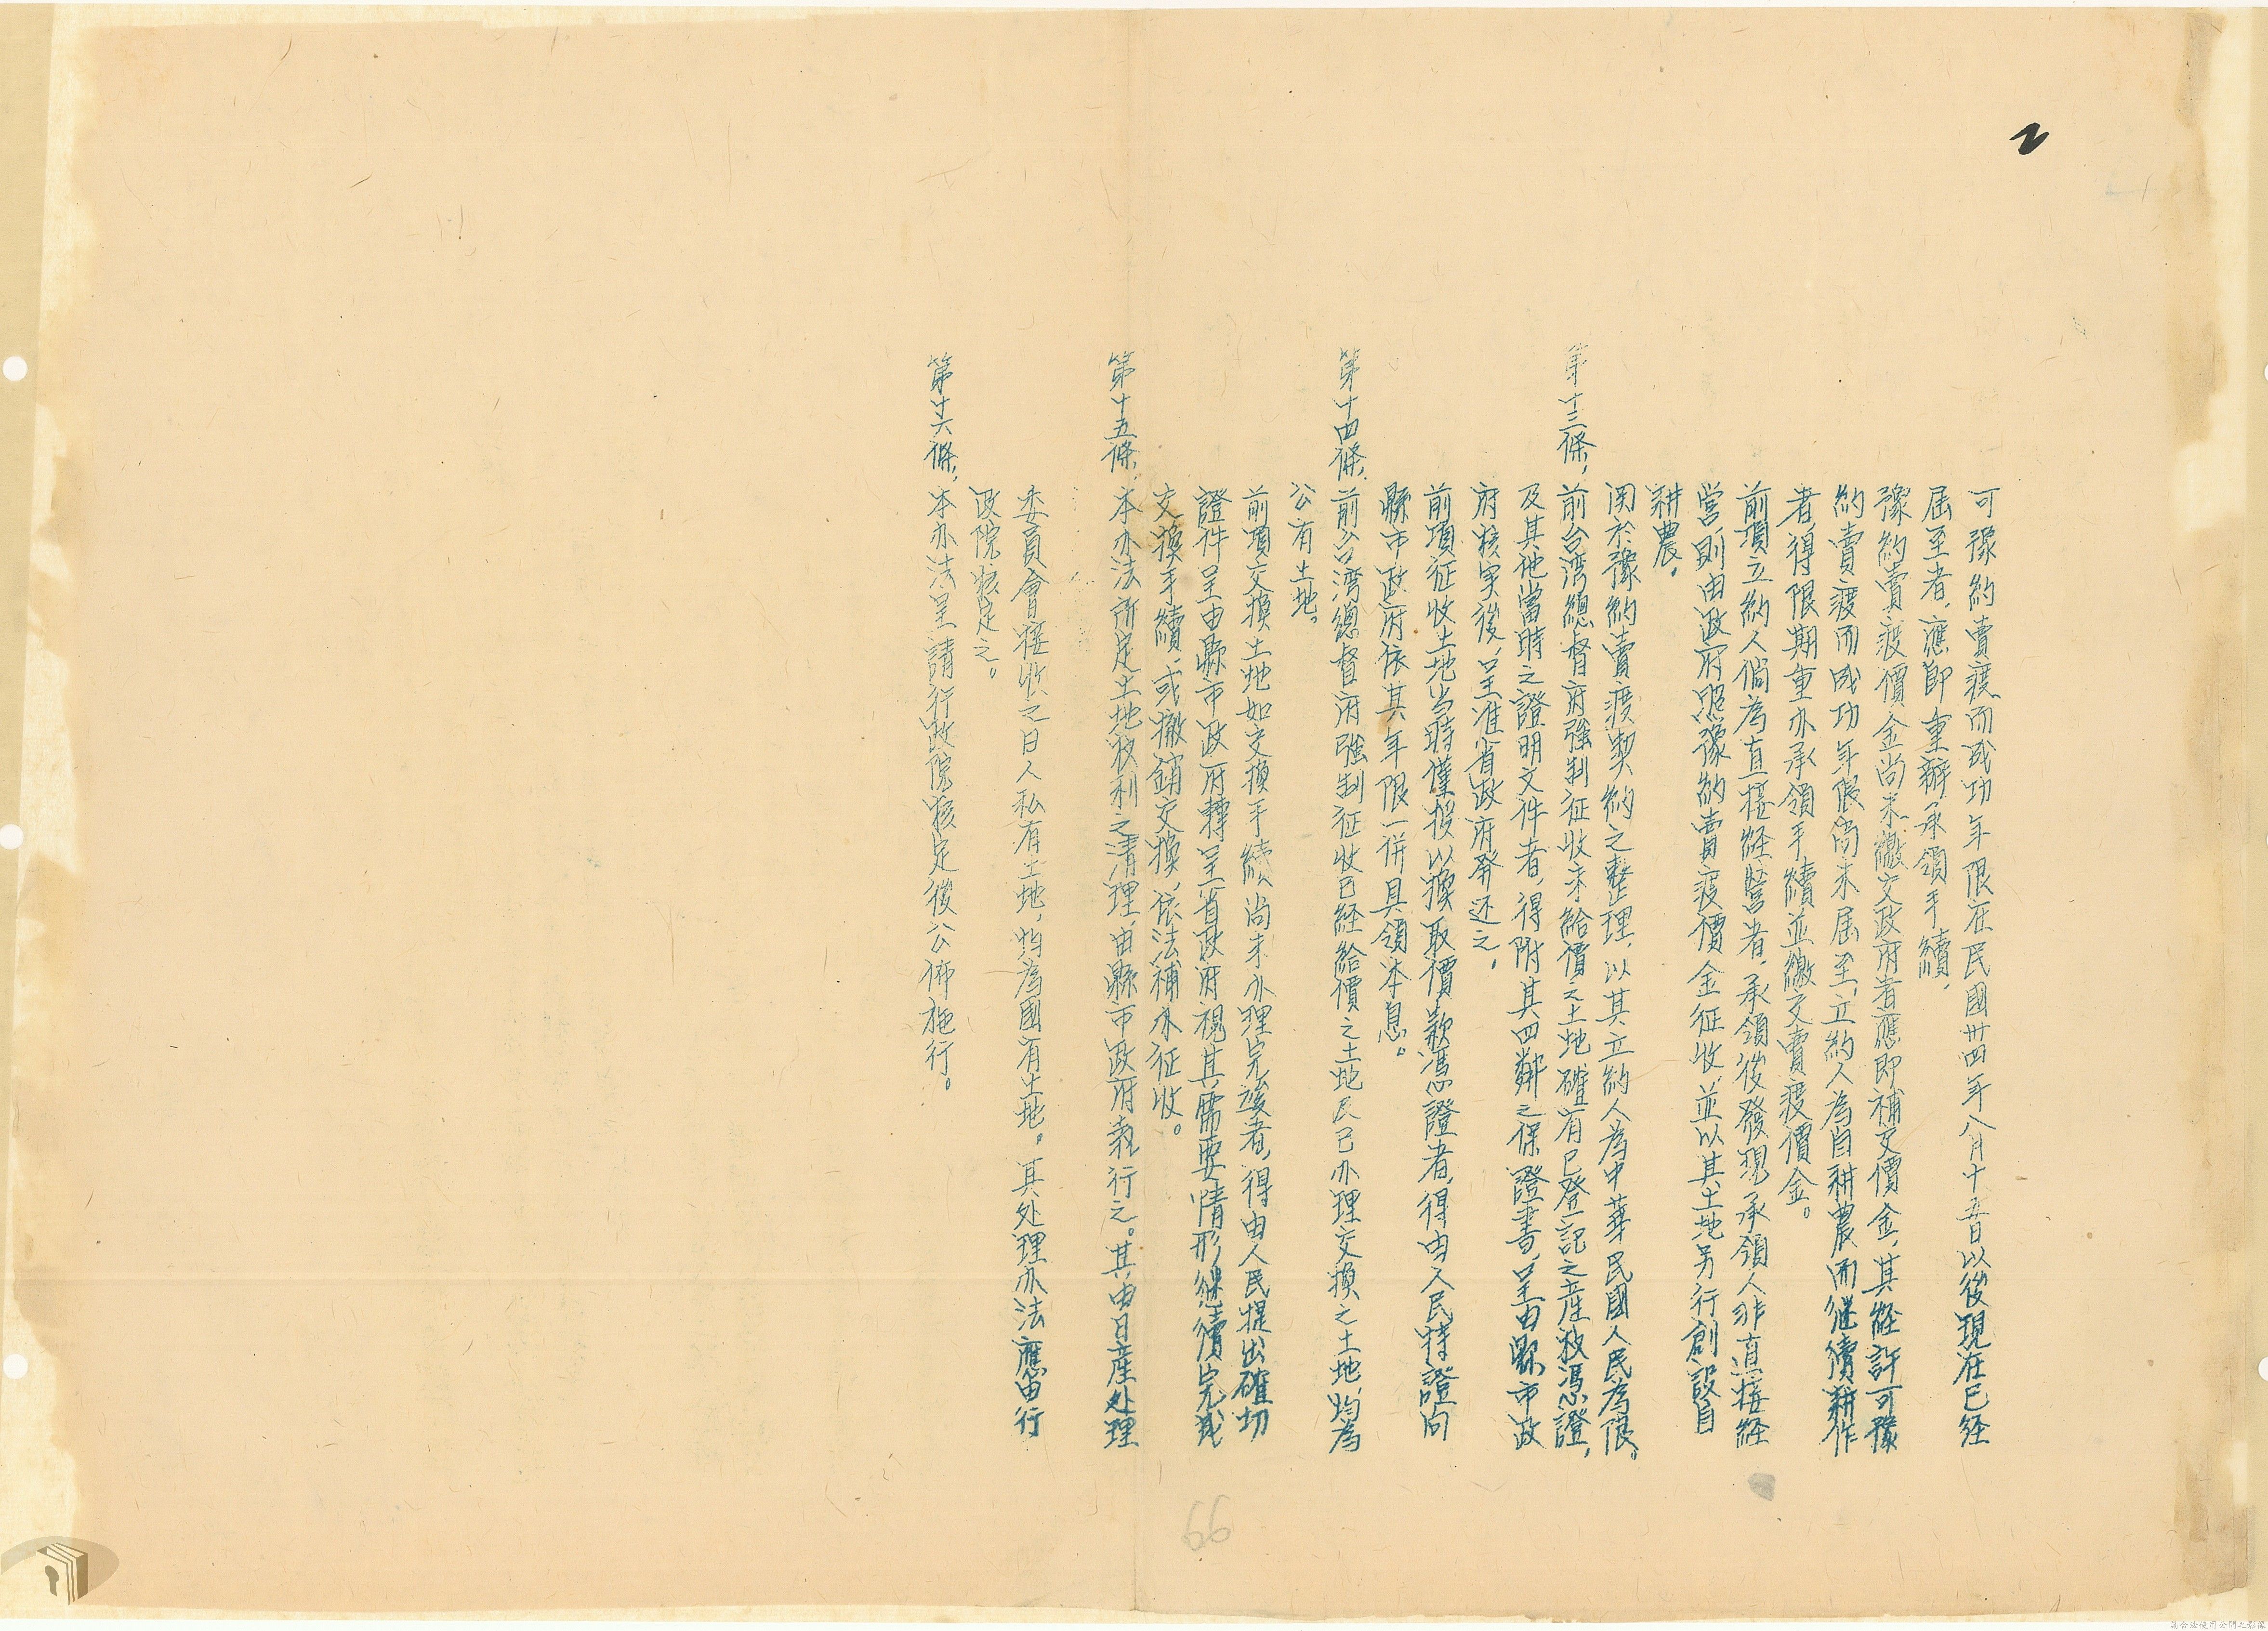 2
可豫約賣渡而成功年限在民國卅四年八月十五日以後現在已経
屆至者,應即重辦承領手續,
豫約賣渡價金尚未繳交政府者應即補交價金,其経許可豫
約賣渡而成功年限尚未屆至,立約人為自耕農而継續耕作
者,得限期重办承領手續並繳交賣渡價金。
前項立約人倘為直接経營者,承領後發現承領人非直接経
営,則由政府照豫約賣渡價金征收,並以其土地另行創設自
耕農。
関於豫約賣渡契約之整理,以其立約人為中華民國人民為限。
第十三條,前台湾總督府強制征收未給價之土地,確有已登記之産权馮證,
及其他當時之證明文件者,得附其四鄰之保證書,呈由縣市政
府核実後,呈准省政府發还之,
前項征收土地当時僅授以換取價款馮證者,得由人民持證向
縣市政府依其年限一併具領本息。
第十四條,前台湾總督府強制征收已経給價之土地及已办理交換之土地,均為
公有土地。
前項交換土地如交換手續尚未办理完竣者,得由人民提出確切
證件呈由縣市政府轉呈省政府視其需要情形継續完成
交換手續,或撤銷交換,依法補办征收。
第十五條,本办法所定土地权利之清理,由縣市政府執行之。其由日産处理
委員會接收之日人私有土地,均為國有土地。其处理办法應由行
政院核定之。
第十六條,本办法呈請行政院核定後公佈施行。
99
請合法使用公開之影像